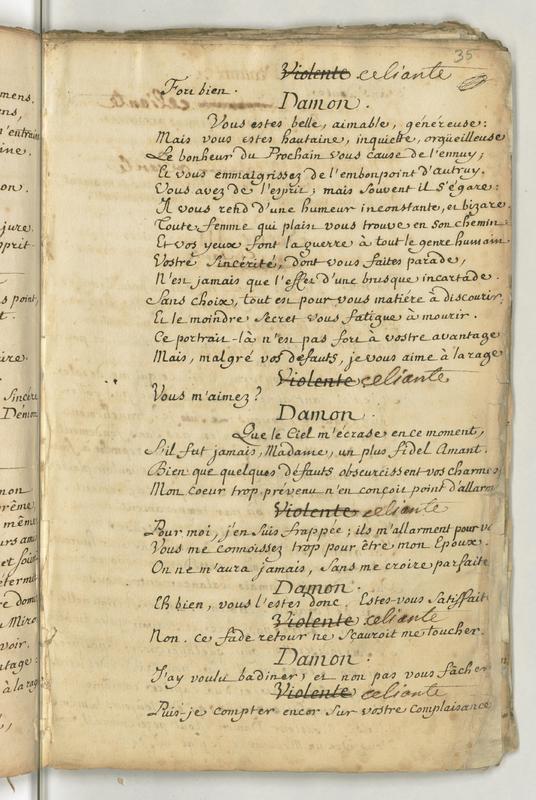 35
Violente celiante
Fort bien.
Damon.
Vous estes belle, aimable, généreuse:
Mais vous estes hautaine, inquiette, orgüeilleuse
Le bonheur du Prochain vous cause de l'ennuy;
Et vous emmaigrissez de l'embonpoint d'autruy.
Vous avez de l'esprit; mais souvent il s'égare:
Il vous rend d'une humeur inconstante, et bizare.
Toute femme qui plaist vous trouve en son chemin
Et vos yeux font la guerre à tout le genre humain
Vostre Sincérité, dont vous faites parade,
N'est jamais que l'effet d'une brusque incartade.
Sans choix, tout est pour vous matière à discourir,
Et le moindre Secret vous fatigue à mourir.
Ce portrait-là n'en pas fort à vostre avantage
Mais, malgré vos défauts, je vous aime à la rage
Violente celiante
Vous m'aimez?
Damon.
Que le Ciel m'écrase en ce moment,
S'il fut jamais, Madame, un plus fidel Amant.
Bien que quelques défauts obscurcissent vos charmes,
Mon coeur trop prévenu n'en conçoit point d'allarm
Violente celiante
Pour moi, j'en suis frappée; ils m'allarment pour v
Vous me connoissez trop pour être mon Epoux.
On ne m'aura jamais, sans me croire parfaite
Damon.
Eh bien, vous l'estes donc. Estes-vous Satisfait
Violente celiante
Non. ce fade retour ne sçauroit me toucher.
Damon.
J'ay voulu badiner, et non pas vous fâcher
Violente celiante
Puis-je compter encor sur vostre complaisance